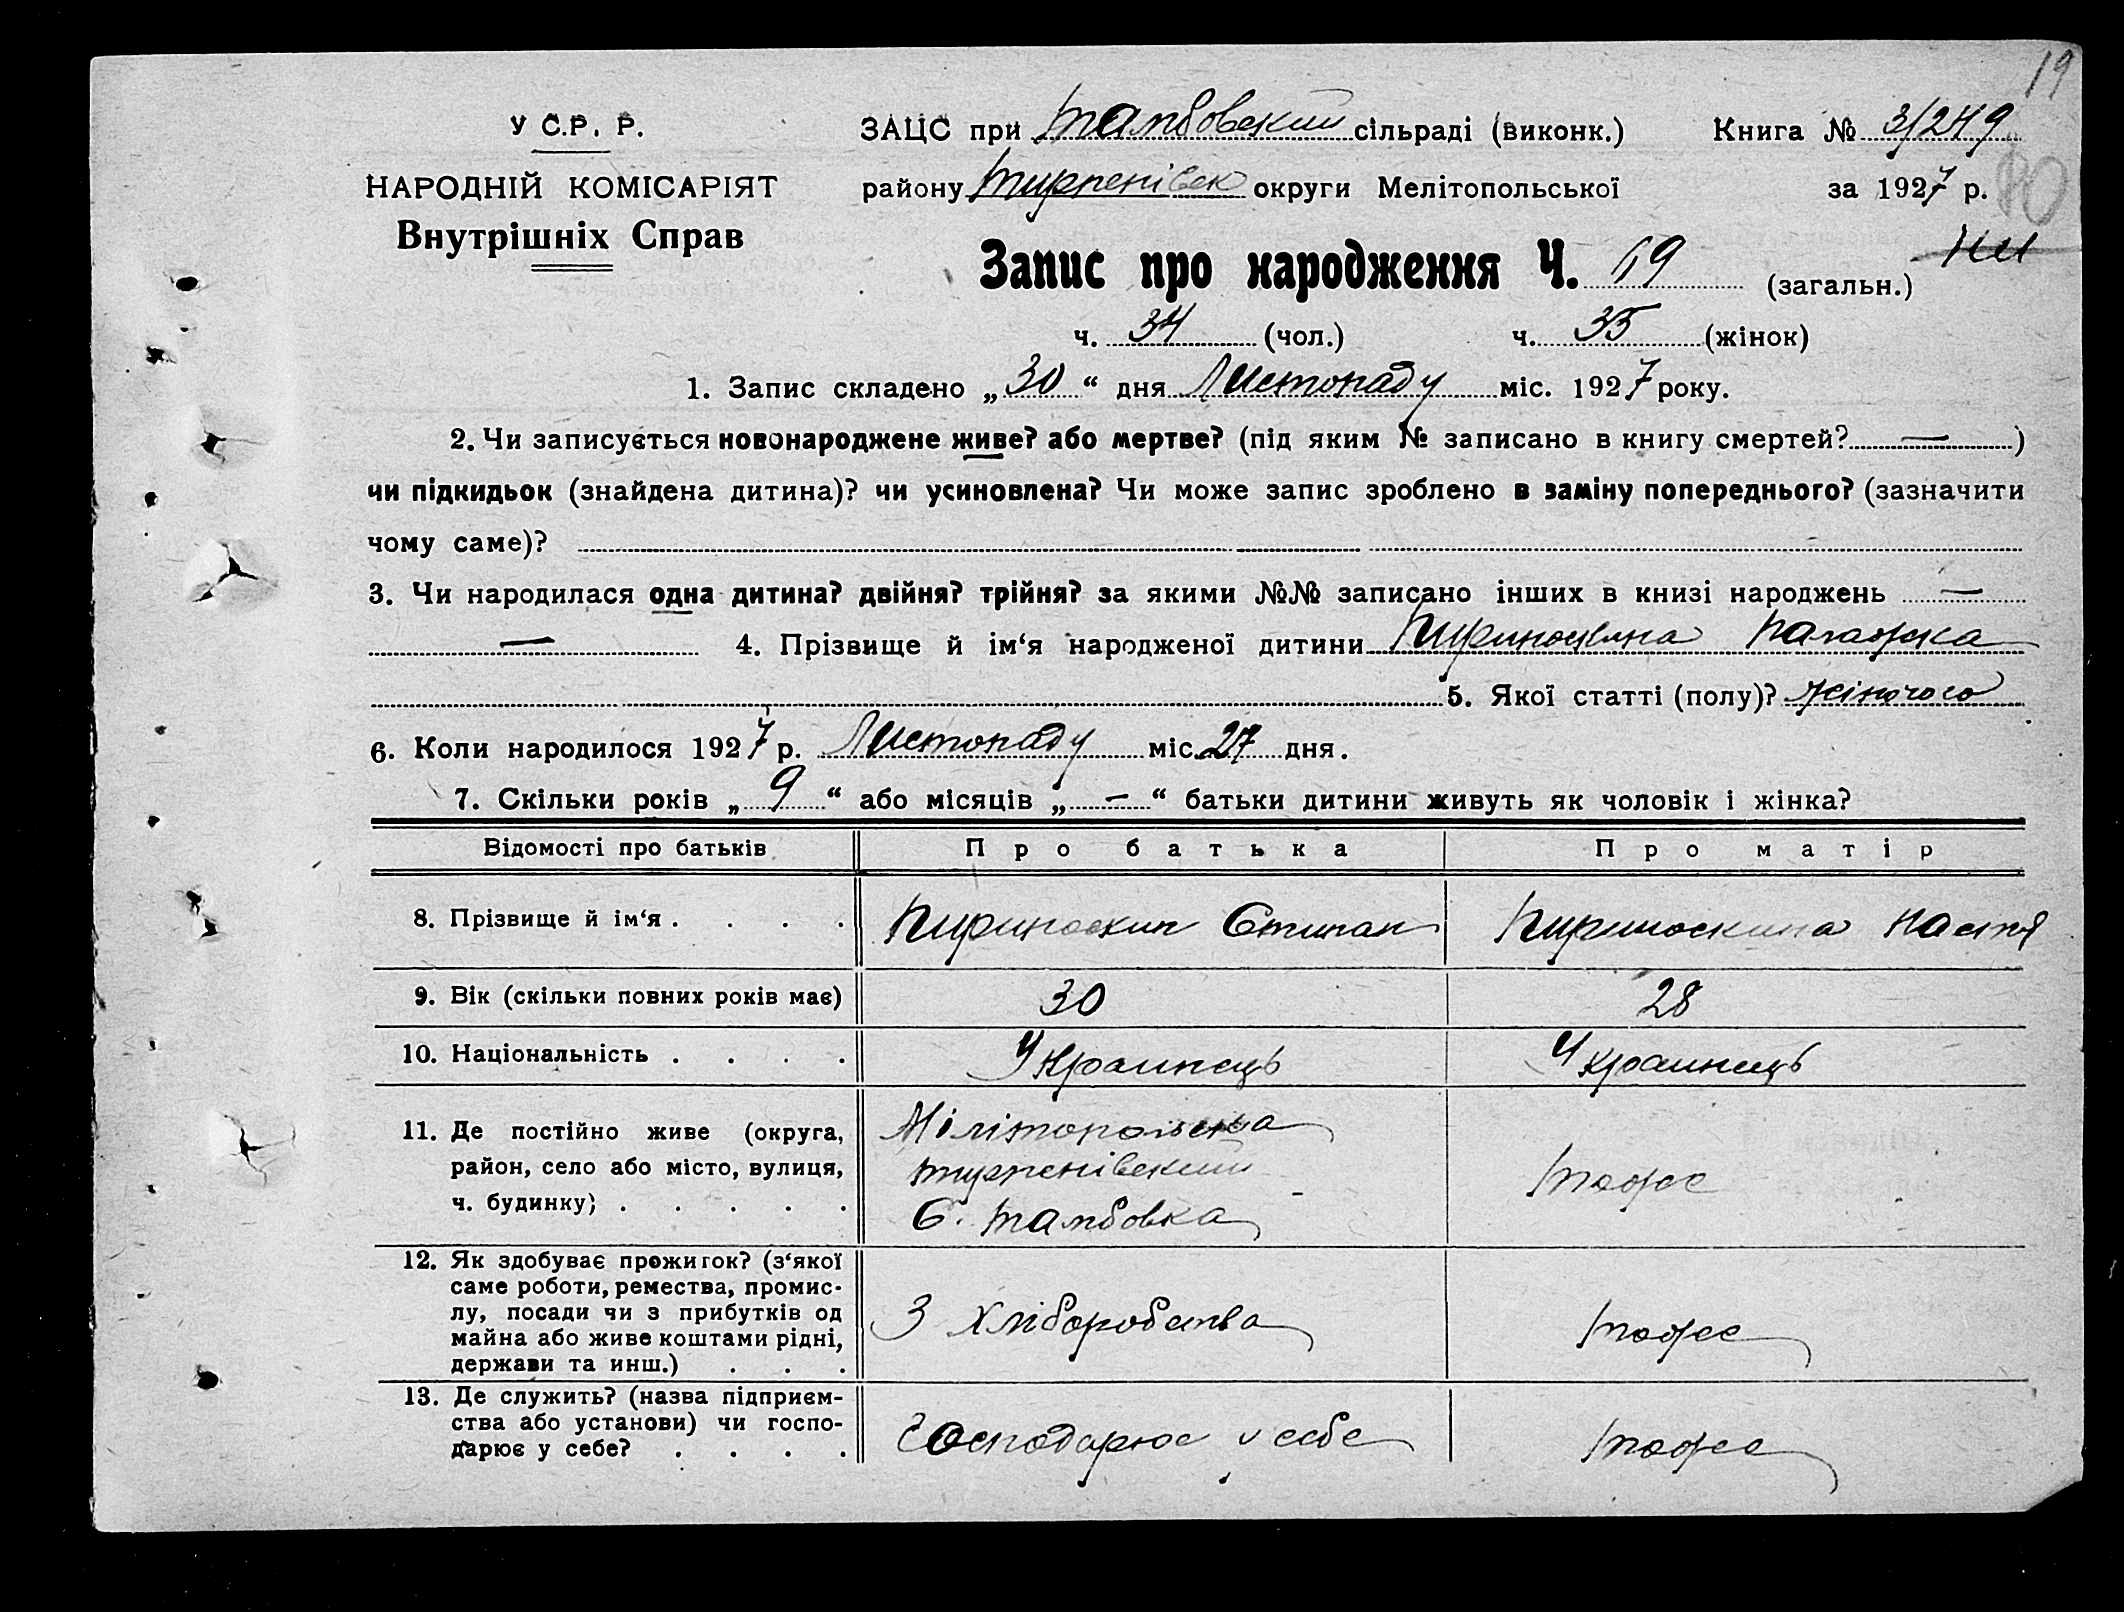 19
У С.Р. Р.
НАРОДНІЙ КОМІСАРІЯТ
Внутрішніх Справ
ЗАЦС при Тамбовский сільраді (виконк.) Книга № 3/249
району округи Мелітопольської за 1927 р. 80
Запис про народження Ч. 69 (загальн.)
ч. 34 (чол.) ч. 35 (жінок)
1. Запис складено „30“ дня Листопаду міс. 1927 року.
2. Чи записується новонароджене живе? або мертве? (під яким № записано в книгу смертей? — )
чи підкидьок (знайдена дитина)? чи усиновлена? Чи може запис зроблено в заміну попереднього? (зазначити
чому саме)?
3. Чи народилася одна дитина? двійня? трійня? за якими №№ записано інших в книзі народжень —
— 4. Прізвище й ім‘я народженої дитини
5. Якої статті (полу)? жіночого
6. Коли народилося 1927 р. Листопаду міс. 27 дня.
7. Скільки років „9“ або місяців „—“ батьки дитини живуть як чоловік і жінка?
Відомості про батьків Про батька Про матір
8. Прізвище й ім‘я . . . . Пириноскин Стипан Пириноскина Настя
9. Вік (скільки повних років має) 30 28
10. Національність . . . . Украинець Украинець
11. Де постійно живе (округа, Мілітопольска
район, село або місто, вулиця, тоже
ч. будинку) . . . . . С. Тамбовка
12. Як здобуває прожиток? (з‘якої
саме роботи, ремества, промис-
лу, посади чи з прибутків од З хліборобства тоже
майна або живе коштами рідні,
держави та инш.) . . .
13. Де служить? (назва підприєм-
ства або установи) чи госпо- Господарює у себе тоже
дарює у себе? . . . .